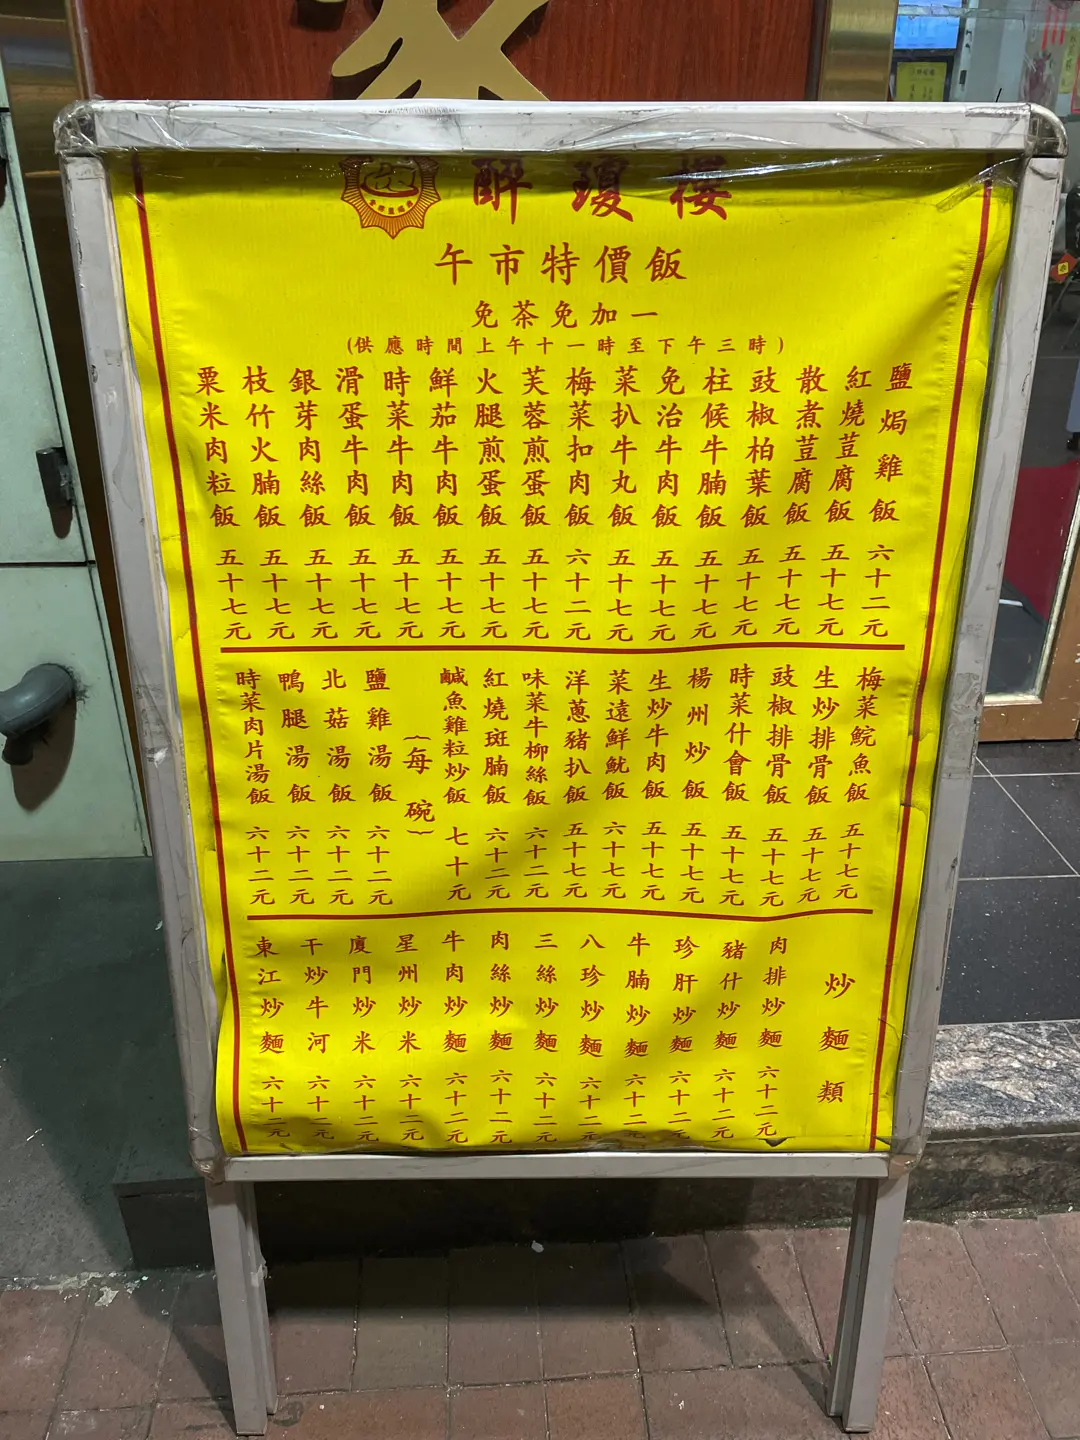 醉瓊樓
午市特價飯
免茶免加一
(供應時間上午十一時至下午三時)
鹽焗雞飯 六十二元
紅燒荳腐飯 五十七元
散煮荳腐飯 五十七元
豉椒柏葉飯 五十七元
柱候牛腩飯 五十七元
免治牛肉飯 五十七元
菜扒牛丸飯 五十七元
梅菜扣肉飯 六十二元
芙蓉煎蛋飯 五十七元
火腿煎蛋飯 五十七元
鮮茄牛肉飯 五十七元
時菜牛肉飯 五十七元
滑蛋牛肉飯 五十七元
銀芽肉絲飯 五十七元
枝竹火腩飯 五十七元
粟米肉粒飯 五十七元
梅菜鯇魚飯 五十七元
生炒排骨飯 五十七元
豉椒排骨飯 五十七元
時菜什會飯 五十七元
楊州炒飯 五十七元
生炒牛肉飯 五十七元
菜遠鮮魷飯 六十七元
洋蔥豬扒飯 五十七元
味菜牛柳絲飯 六十二元
紅燒斑腩飯 六十二元
鹹魚雞粒炒飯 七十元
(每碗)
鹽雞湯飯 六十二元
北菇湯飯 六十二元
鴨腿湯飯 六十二元
時菜肉片湯飯 六十二元
炒麵類
肉排炒麵 六十二元
豬什炒麵 六十二元
珍肝炒麵 六十二元
牛腩炒麵 六十二元
八珍炒麵 六十二元
三絲炒麵 六十二元
肉絲炒麵 六十二元
牛肉炒麵 六十二元
星州炒米 六十二元
廈門炒米 六十二元
干炒牛河 六十二元
東江炒麵 六十二元